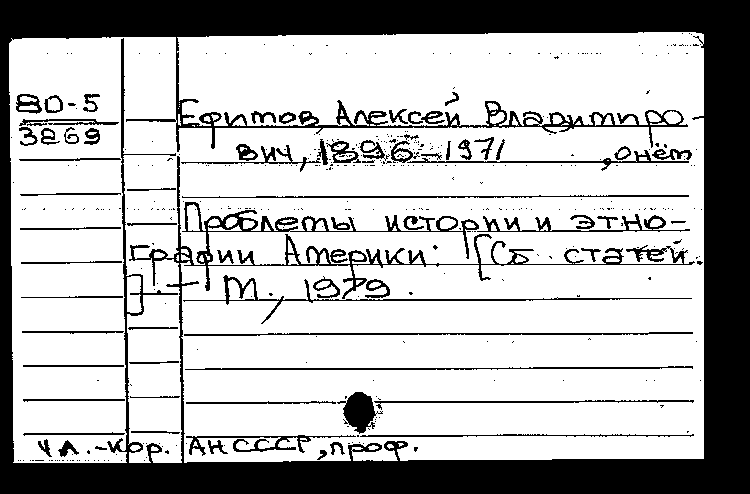 80-5
3269
Ефимов, Алексей Владимиро-
вич, 1896-1971 , о нём
Проблемы истории и этно-
графии Америки: [Сб. статей.
]. - М., 1979.
чл.-кор. АН СССР, проф.